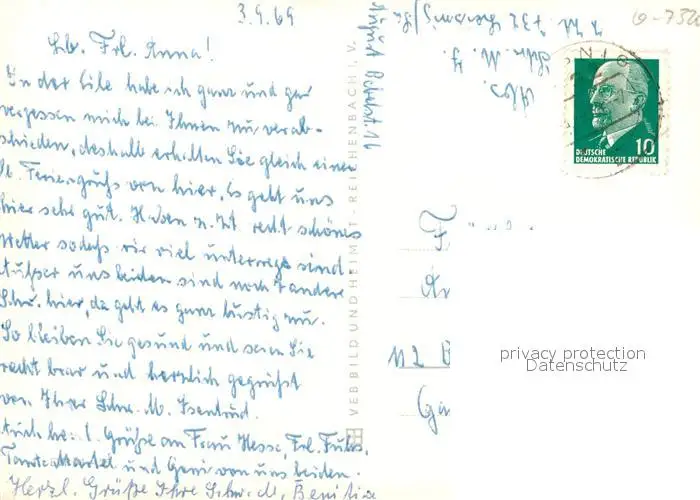 3.9.69
Lb. Frl. Anna!
In der Eile habe ich ganz und gar
vergessen mich bei Ihnen zu verab-
schieden, deshalb erhalten Sie gleich einen
lb. Feriengruß von hier. Es geht uns
hier sehr gut. Haben z. Zt. recht schönes
Wetter sodaß wir viel unterwegs sind
Außer uns beiden sind noch 7 andere
Schw. hier, da geht es ganz lustig zu.
So bleiben Sie gesund und seien Sie
recht brav und herzlich gegrüßt
von Ihrer Schw. M. Isentrud.
Auch he. l. Grüße an Frau Hesse, Frl. Fuchs,
Tante Martel und von uns beiden.
Herzl. Grüße Ihre Schw. M.
VEB BILD UND HEIMAT · REICHENBACH I. V.
Abs.
Schw. M. J.
732
August Bebelst. 16
10
DEUTSCHE
DEMOKRATISCHE REPUBLIK
privacy protection
Datenschutz